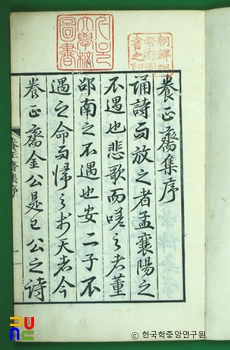 養正齋集序
誦詩而放之者孟襄陽之
不遇也悲歌而嗟之者董
邵南之不遇也安二子不
遇之命而歸之於天者今
養正齋金公是已公之詩
大學校
圖書
한국학중앙연구원